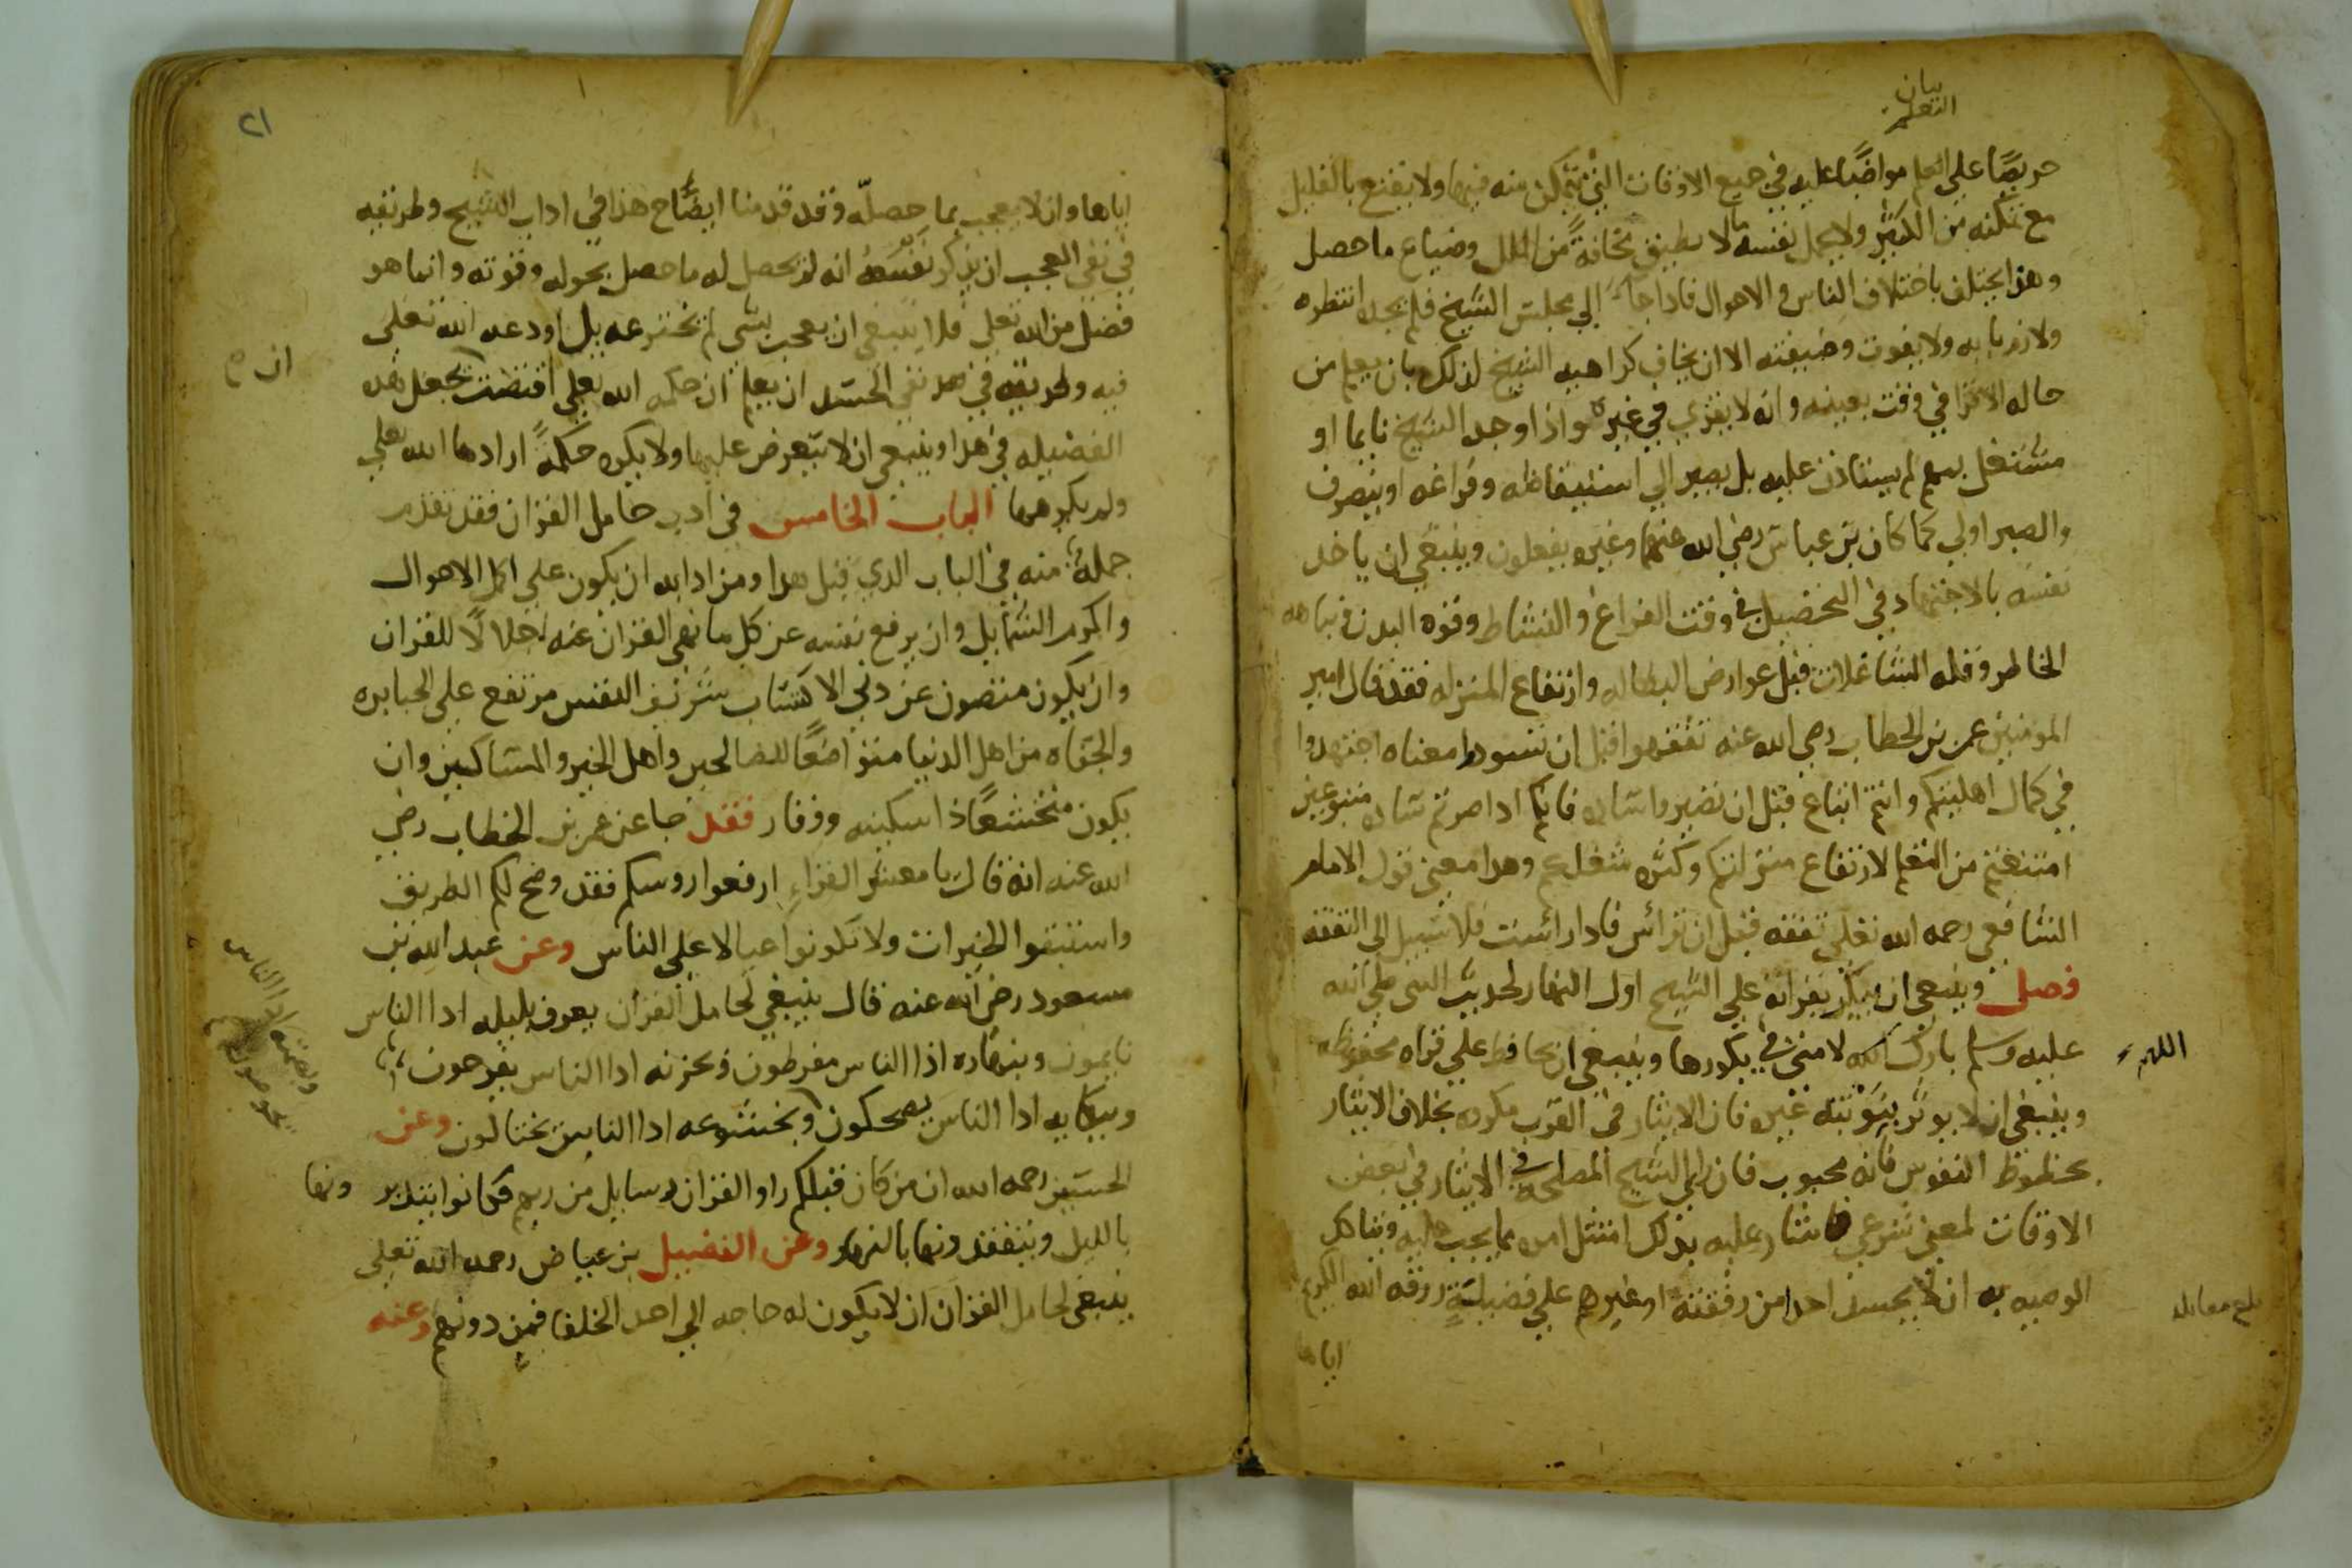 بيان
التعلم
حريصا علي التعلم مواضبا عليه في جميع الاوقات التي يتمكن منه فيها ولا يقنع بالقليل
مع تمكنه من الكثير ولا يحمل نفسه ما لا يطيق مخافة من الملل وضياع ما حصل
وهذا يختلف باختلاف الناس والاحوال فاذا جا الي مجلس الشيخ فلم يجده انتظره
ولازم بابه ولا يفوت وضيفته الا ان يخاف كراهيه الشيخ لذلك بان يعلم من
حاله الاقرا في وقت بعينه وانه لا يقري في غيره واذا وجد الشيخ نايما او
مشتغل بمهم لم يستاذن عليه بل يصبر الي استيقاظه وفراغه او ينصرف
والصبر اولي كما كان بن عباس رضي الله عنهما وغيره يفعلون وينبغي ان ياخذ
نفسه بالاجتهاد في التحصيل في وقت الفراغ والنشاط وقوه البدن ونباهه
الخاطر وقله الشاغلات قبل عوارض البطاله وارتفاع المنزله فقد قال امير
المومنين عمر بن الخطاب رضي الله عنه تفقهوا قبل ان تسودوا معناه اجتهدوا
في كمال اهليتكم وانتم اتباع قبل ان تصيروا ساده فانكم اذا صرتم ساده متبوعين
امتنعتم من التعلم لارتفاع منزلتكم وكثره شغلكم وهدا معني قول الامام
الشافعي رحمه الله تعلي تفقه قبل ان تراس فادا راست فلا سبيل الي التفقه
فصل وينبغي ان يبكر بقراته علي الشيخ اول النهار لحديث النبي صلي الله
عليه وسلم بارك الله لامتي في بكورها وينبغي ان يحافظ علي قراه محفوظه
اللهم
وينبغي ان لا يوثر بنوبته غيره فان الايثار في القرب مكروه بخلاف الايثار
بحظوظ النفوس فانه محبوب فان راي الشيخ المصلحه في الايثار في بعض
الاوقات لمعني شرعي فاشار عليه بذلك امتثل امره مما يجب عليه ويتاكد
الوصيه به ان لا يحسد احدا من رفقته او غيرهم علي فضيلة رزقه الله الكريم
بلغ مقابله
اياها
٢١
اياها وان لا يعجب بما حصله وقد قدمنا ايضاح هذا في اداب الشيخ وطريقه
في نفي العجب ان يذكر نفسه انه لم يحصل له ما حصل بحوله وقوته وانما هو
فضل من الله تعلي فلا ينبغي ان يعجب بشي لم يخترعه بل اودعه الله تعلي
فيه وطريقه في نفي الحسد ان يعلم ان حكمه الله تعلي اقتضت جعل هذه
ان
الفضيله في هدا وينبغي ان لا يتعرض عليها ولا يكره حكمة ارادها الله تعلي
ولم يكرهها الباب الخامس في ادب حامل القران فقد تقدم
جملة منه في الباب الدي قبل هدا ومن ادابه ان يكون علي اكمل الاحوال
واكرم الشمايل وان يرفع نفسه عن كل ما نهي القران عنه اجلالا للقران
وان يكون متصون عن دني الاكتساب شريف النفس مرتفع علي الجبابره
والجفاه من اهل الدنيا متواضعا للصالحين واهل الخير والمساكين وان
يكون متخشعا ذا سكينه ووقار فقد جا عن عمر بن الخطاب رضي
الله عنه انه قال يا معشر القراء ارفعوا روسكم فقد وضح لكم الطريق
واستبقوا الخيرات ولا تكونوا عيالا علي الناس وعن عبد الله بن
مسعود رضي الله عنه قال ينبغي لحامل القران يعرف بليله ادا الناس
نايمون وبنهاره اذا الناس مفرطون وبحزنه ادا الناس يفرحون
وببكايه ادا الناس يضحكون وبخشوعه ادا الناس يختالون وعن
وبصمته ادا الناس
يخوضون
الحسين رحمه الله ان من كان قبلكم راو القران رسايل من ربهم فكانوا يتدبرونها
بالليل ويتفقدونها بالنهار وعن الفضيل بن عياض رحمه الله تعلي
ينبغي لحامل القران ان لا يكون له حاجه الي احد الخلفا فمن دونهم وعنه